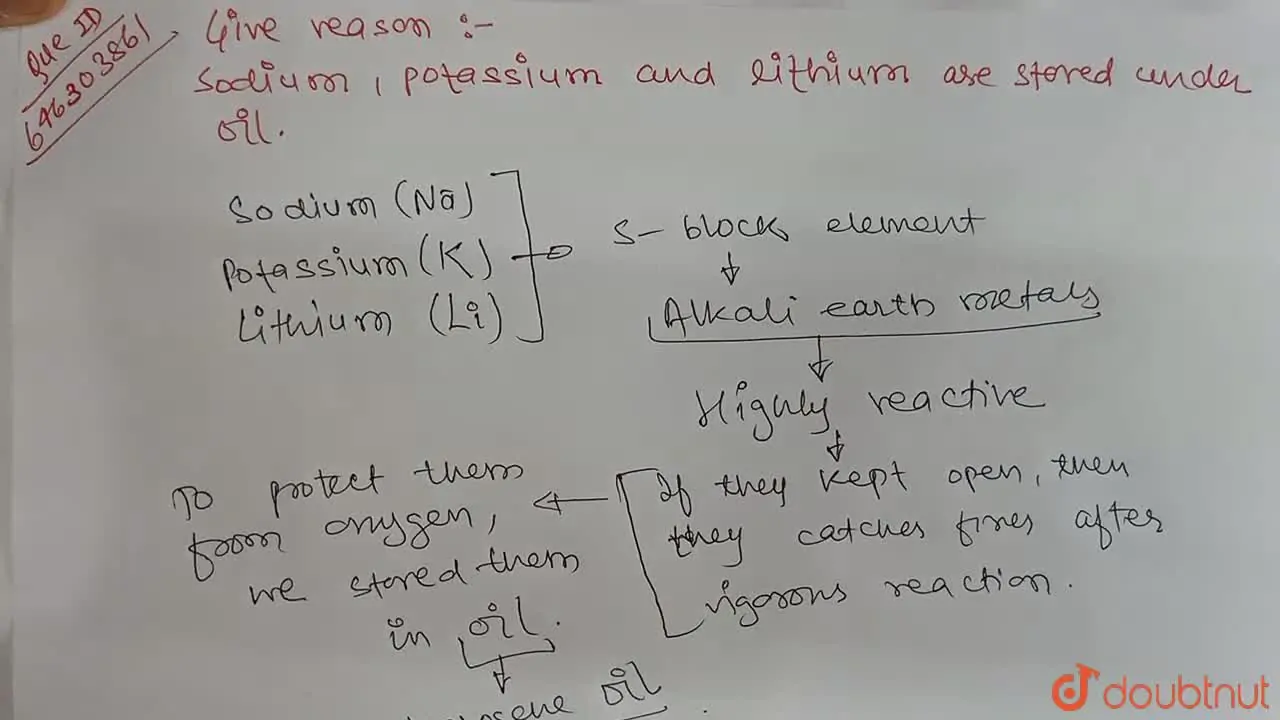 Que ID
646303861
Give reason :-
Sodium, potassium and lithium are stored under
oil.
Sodium (Na)
Potassium (K)
Lithium (Li)
S-block element
Alkali earth metals
Highly reactive
If they kept open, then
they catches fires after
vigorous reaction.
To protect them
from oxygen,
we stored them
in oil.
oil.
doubtnut